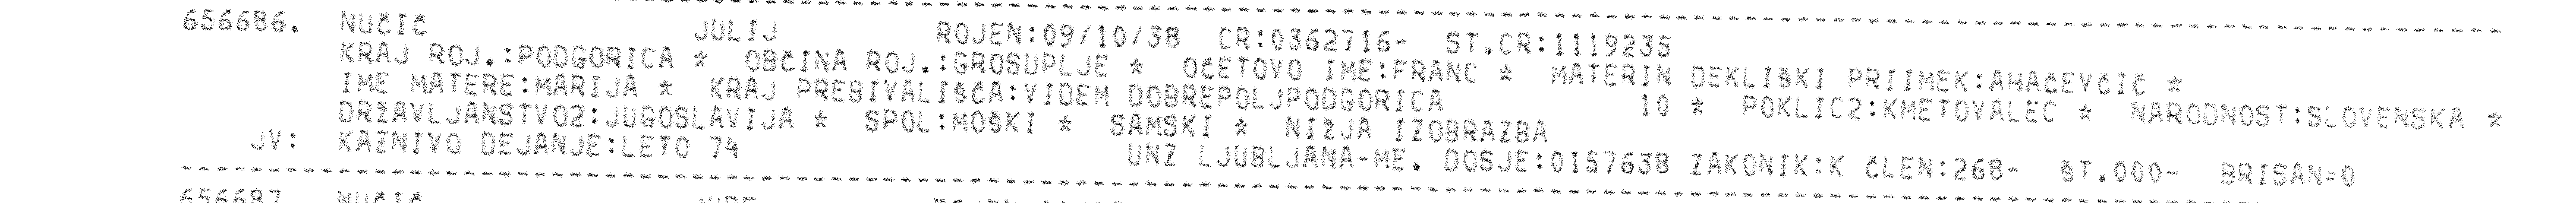 656686. NUČIČ JULIJ ROJEN:09/10/38 CR:0362716- ST.CR:1119235
KRAJ ROJ.:PODGORICA * OBČINA ROJ.:GROSUPLJE * OČETOVO IME:FRANC * MATERIN DEKLIŠKI PRIIMEK:AHAČEVČIČ *
IME MATERE:MARIJA * KRAJ PREBIVALIŠČA:VIDEM DOBREPOLJPODGORICA 10 * POKLIC2:KMETOVALEC * NARODNOST:SLOVENSKA *
DRŽAVLJANSTVO2:JUGOSLAVIJA * SPOL:MOŠKI * SAMSKI * NIŽJA IZOBRAZBA
JV: KAZNIVO DEJANJE:LETO 74 UNZ LJUBLJANA-ME. DOSJE:0157638 ZAKONIK:K ČLEN:268- ŠT.000- BRISAN=0
656687 NUČIČ